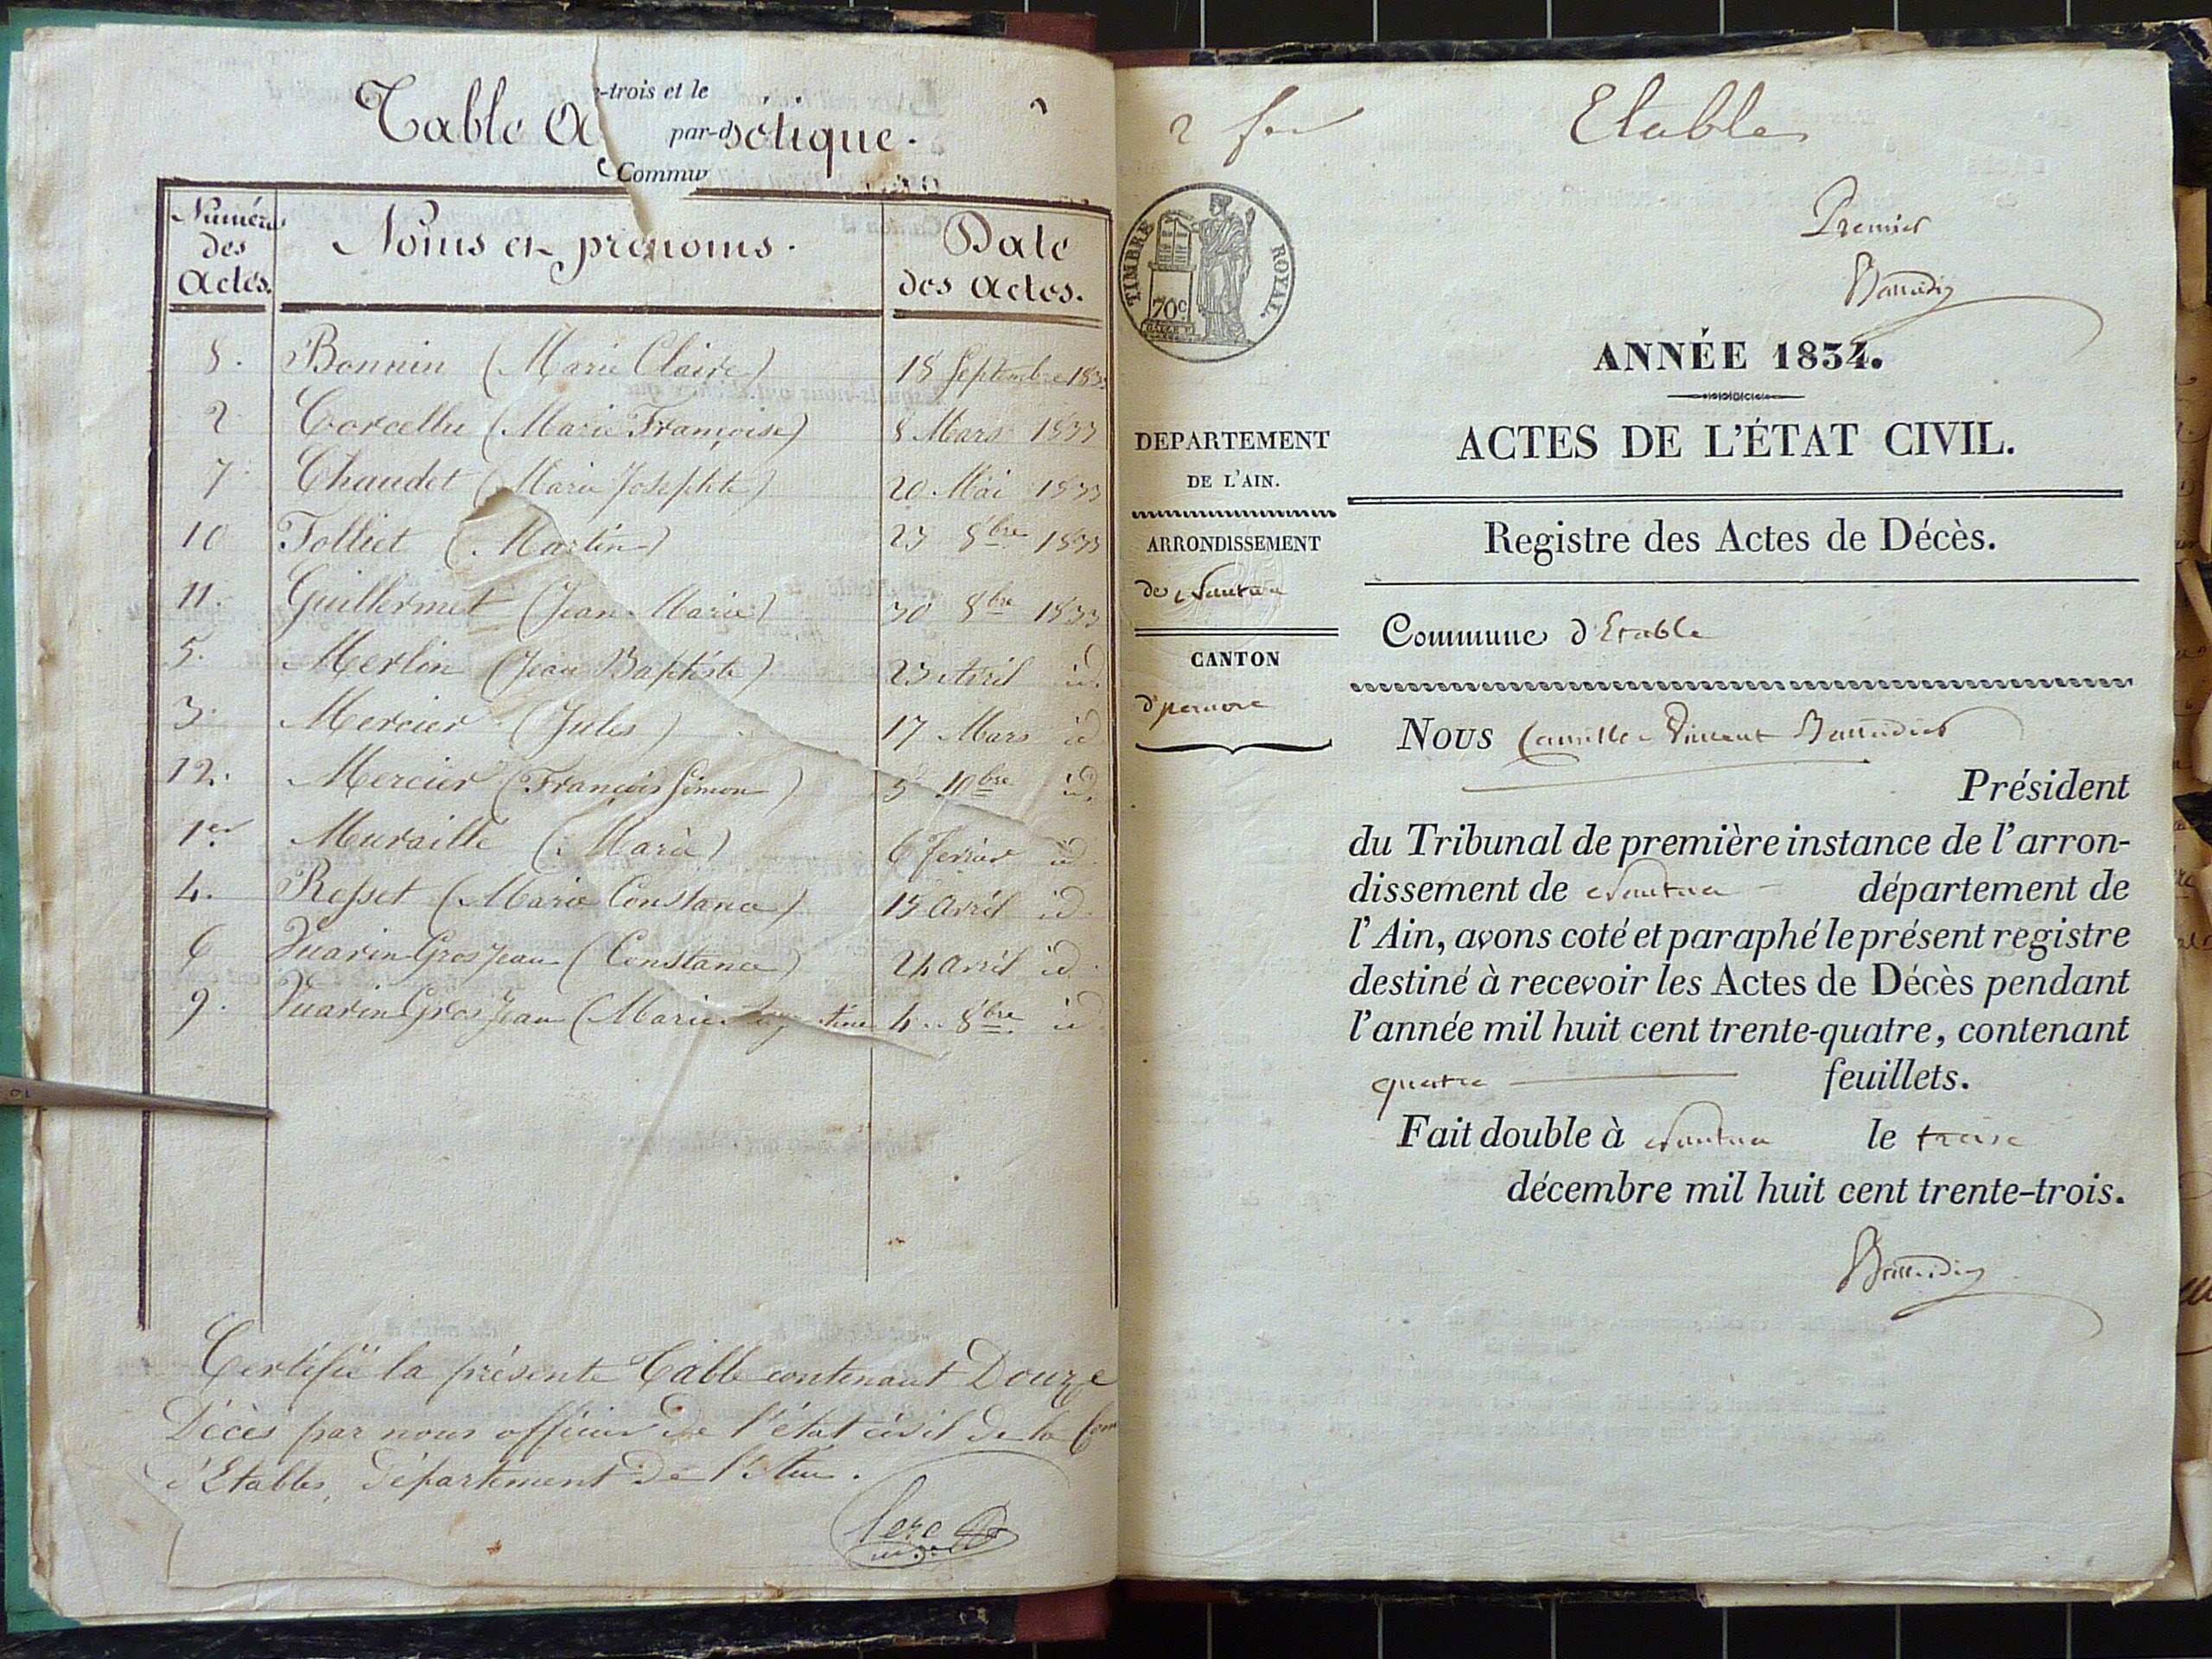 -trois et le
Table A par-d bétique.
Commu
Numéros des Actes.
Noms et prénoms.
Date des Actes.
8. Bonnin (Marie Claire) 18 Septembre 1833
2 Corcellu (Marie Françoise) 8 Mars 1833
7. Chaudet (Marie Josephte) 20 Mai 1833
10 Folliet (Martin) 23 8bre 1833
11. Guillermet (Jean Marie) 30 8bre 1833
5. Merlin (Jean Baptiste) 23 Avril id.
3. Mercier (Jules) 17 Mars id
12. Mercier (François Simon) 5 10bre id.
1er Muraille (Marie) 6 fevrier id.
4. Rosset (Marie Constance) 15 avril id.
6 Vuarin Gros Jean (Constance) 24 avril id.
9. Vuarin Gros Jean (Marie tine 4. 8bre id.
Certifié la présente Table contenant Douze
Décès par nous officier de l'état civil de la Com
d'Etables, département de l'Ain.
Clerc
2 fev
Etables
TIMBRE ROYAL
70c
Premier
ANNÉE 1834.
ACTES DE L'ÉTAT CIVIL.
Registre des Actes de Décès.
DEPARTEMENT
DE L'AIN.
ARRONDISSEMENT
de Nantua
CANTON
d'
Commune d'Etable
Nous Camille Vincent
Président
du Tribunal de première instance de l'arron-
dissement de Nantua département de
l'Ain, avons coté et paraphé le présent registre
destiné à recevoir les Actes de Décès pendant
l'année mil huit cent trente-quatre, contenant
quatre feuillets.
Fait double à Nantua le treise
décembre mil huit cent trente-trois.